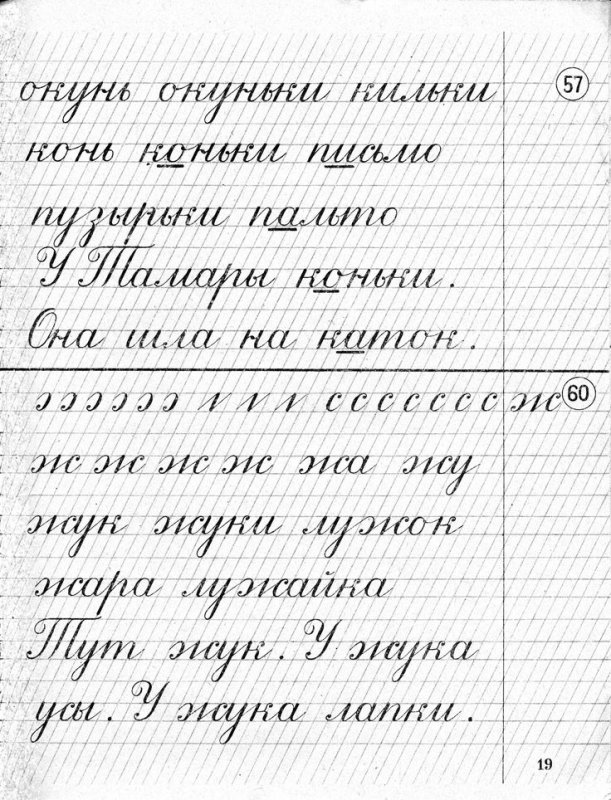 окунь окуньки кильки 57
конь коньки письмо
пузырьки пальто
У Тамары коньки.
Она шла на каток.
ж 60
ж ж ж ж жа жу
жук жуки лужок
жара лужайка
Тут жук. У жука
усы. У жука лапки.
19